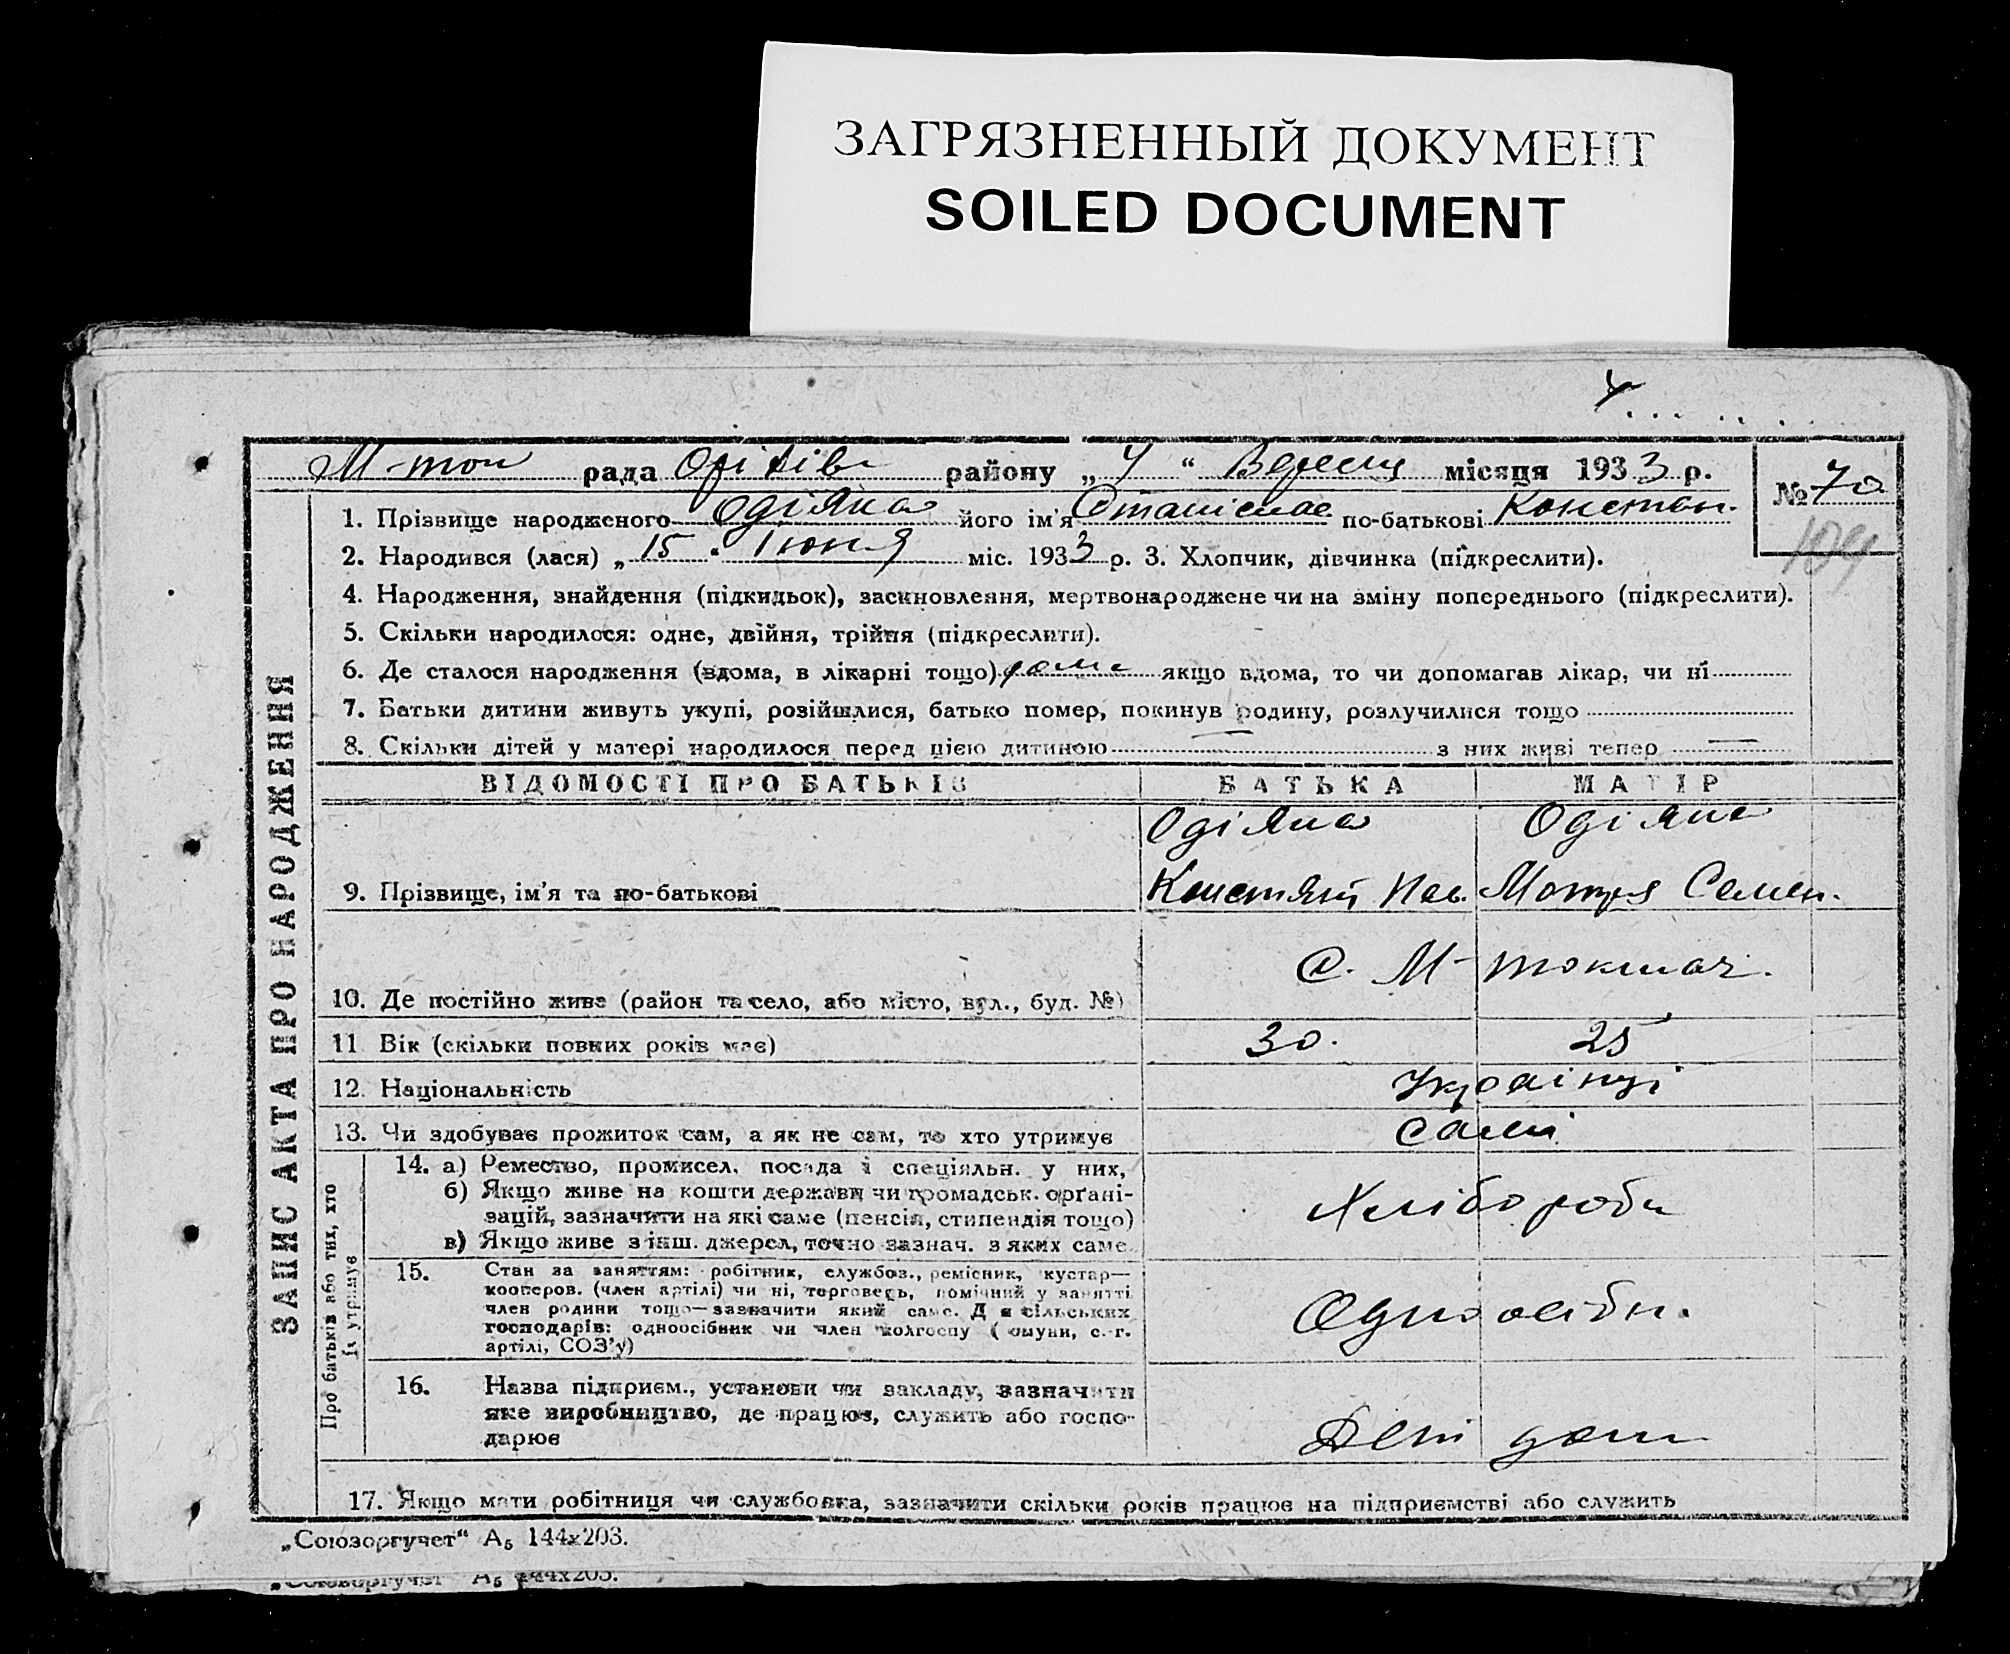 ЗАГРЯЗНЕННЫЙ ДОКУМЕНТ
SOILED DOCUMENT
М-ток рада Оріхів району „ 4 “ Вересня місяця 1933 р. № 70
109
1. Прізвище народженого Одіяка його ім'я Станіслав по-батькові Констан.
2. Народився (лася) „ 15 “ Іюня міс. 1933 р. 3. Хлопчик, дівчинка (підкреслити).
4. Народження, знайдення (підкидьок), засиновлення, мертвонароджене чи на зміну попереднього (підкреслити).
5. Скільки народилося: одне, двійня, трійня (підкреслити).
6. Де сталося народження (вдома, в лікарні тощо) дома якщо вдома, то чи допомагав лікар, чи ні
7. Батьки дитини живуть укупі, розійшлися, батько помер, покинув родину, розлучилися тощо
8. Скільки дітей у матері народилося перед цією дитиною — з них живі тепер —
ЗАПИС АКТА ПРО НАРОДЖЕННЯ
ВІДОМОСТІ ПРО БАТЬКІВ БАТЬКА МАТІР
Одіяка Одіяка
9. Прізвище, ім'я та по-батькові Констянт Пав. Мотря Семен.
10. Де постійно живе (район та село, або місто, вул., буд. №) С. М-токмач.
11 Вік (скільки повних років має) 30. 25
12. Національність Українці
13. Чи здобуває прожиток сам, а як не сам, то хто утримує сами
Про батьків або тих, хто їх утримує
14. а) Ремество, промисел, посада і спеціяльн. у них,
б) Якщо живе на кошти держави чи громадськ. органі-
зацій, зазначити на які саме (пенсія, стипендія тощо) Хлібороби
в) Якщо живе з інш. джерел, точно зазнач. з яких саме
15. Стан за заняттям: робітник, службов., ремісник, кустар—
кооперов. (член артілі) чи ні, торговець, помічний у занятті
член родини тощо—зазначити який саме. Для сільських
господарів: одноосібник чи член колгоспу (комуни, с.-г. Одноосібн.
артілі, СОЗ'у)
16. Назва підприєм., установи чи закладу, зазначити
яке виробництво, де працює, служить або госпо-
дарює
17. Якщо мати робітниця чи службовка, зазначити скільки років працює на підприємстві або служить
„Союзоргучет“ А5 144х203.
„Союзоргучет“ А5 144х203.